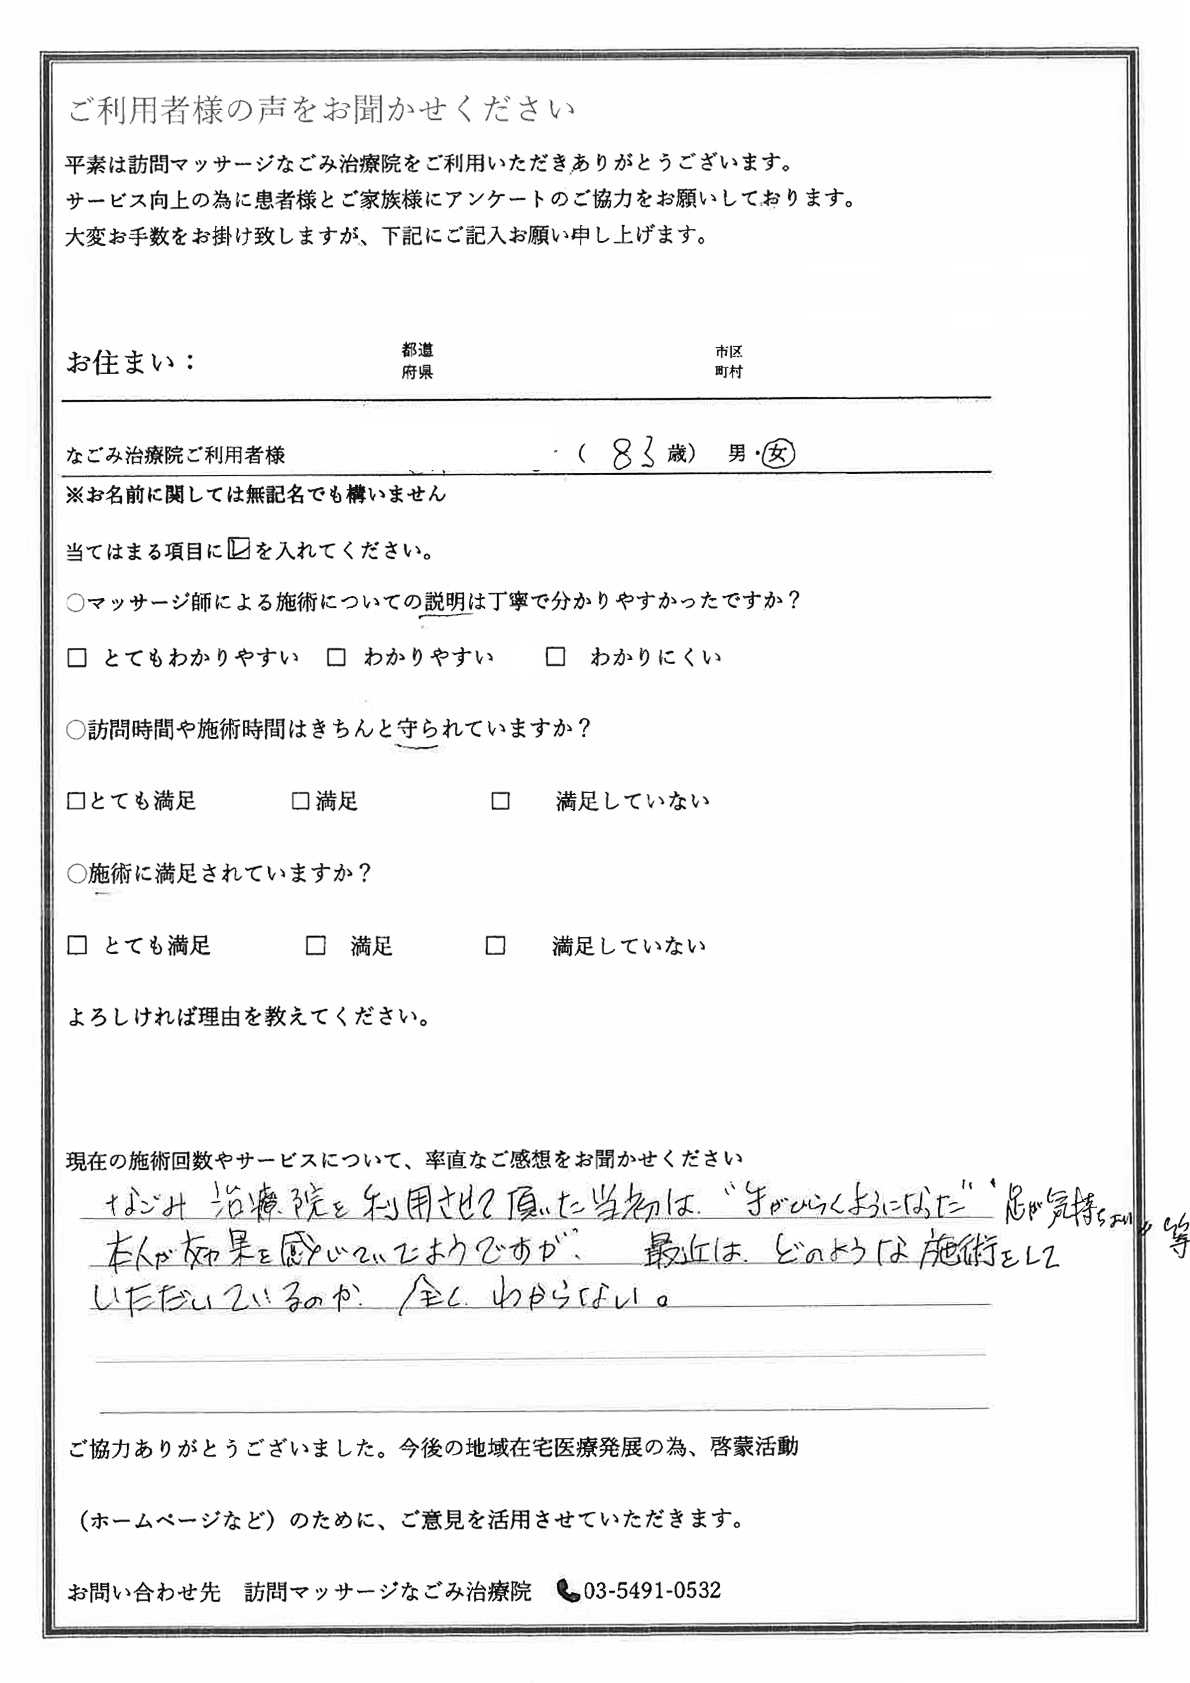 ご利用者様の声をお聞かせください
平素は訪問マッサージなごみ治療院をご利用いただきありがとうございます。
サービス向上の為に患者様とご家族様にアンケートのご協力をお願いしております。
大変お手数をお掛け致しますが、下記にご記入お願い申し上げます。
お住まい： 都道府県 市区町村
なごみ治療院ご利用者様 （ 83 歳） 男・女
※お名前に関しては無記名でも構いません
当てはまる項目に☑を入れてください。
○マッサージ師による施術についての説明は丁寧で分かりやすかったですか？
□ とてもわかりやすい □ わかりやすい □ わかりにくい
○訪問時間や施術時間はきちんと守られていますか？
□とても満足 □満足 □ 満足していない
○施術に満足されていますか？
□ とても満足 □ 満足 □ 満足していない
よろしければ理由を教えてください。
現在の施術回数やサービスについて、率直なご感想をお聞かせください
なごみ治療院を利用させて頂いた当初は、"手がひらくようになった" "足が気持ちよい"等
本人が効果を感じていたようですが、最近は、どのような施術をして
いただいているのか、全くわからない。
ご協力ありがとうございました。今後の地域在宅医療発展の為、啓蒙活動
（ホームページなど）のために、ご意見を活用させていただきます。
お問い合わせ先 訪問マッサージなごみ治療院 03-5491-0532